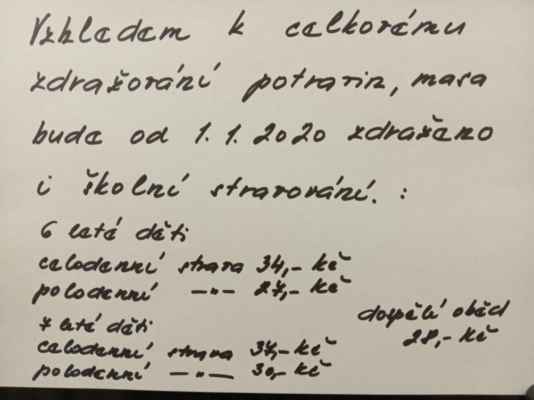 Vzhledem k celkovému
zdražování potravin, masa
bude od 1.1.2020 zdraženo
i školní stravování. :
6 leté děti
celodenní strava 34,- kč
polodenní -"- 27,- kč
7 leté děti
celodenní strava 37,- kč
polodenní -"- 30,- kč
dospělí oběd
28,- kč